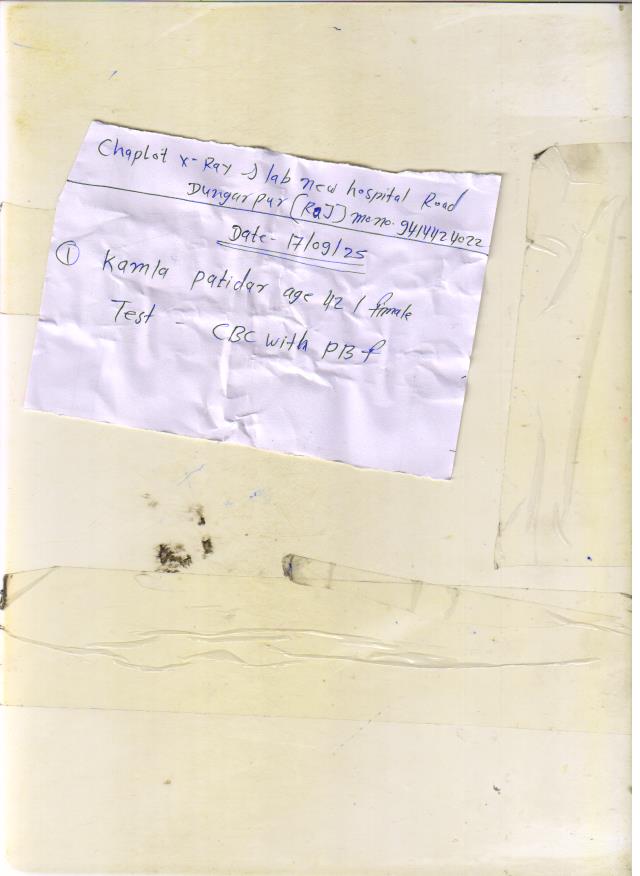 Chaplot x-Ray & lab new hospital Road
Dungarpur (Raj) mo no. 9414424022
Date - 17/09/25
① Kamla patidar age 42 / fimale
Test - CBC with PBf